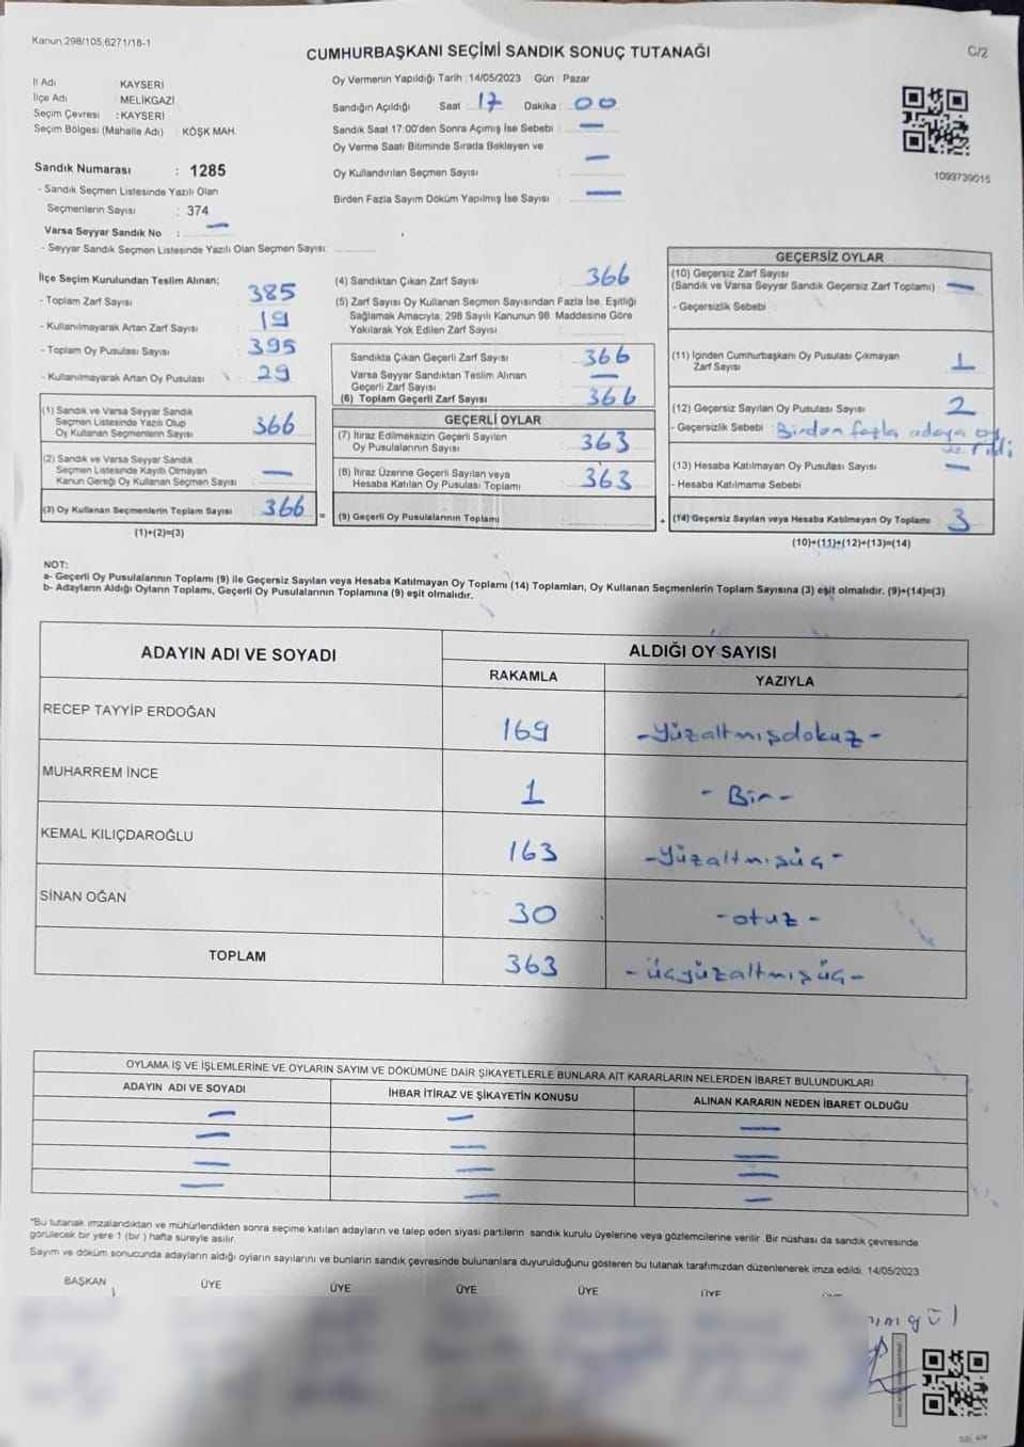 Kanun 298/105,6271/18-1
CUMHURBAŞKANI SEÇİMİ SANDIK SONUÇ TUTANAĞI
C/2
İl Adı KAYSERİ
İlçe Adı MELİKGAZİ
Seçim Çevresi : KAYSERİ
Seçim Bölgesi (Mahalle Adı) : KÖŞK MAH.
Sandık Numarası : 1285
- Sandık Seçmen Listesinde Yazılı Olan
Seçmenlerin Sayısı : 374
Varsa Seyyar Sandık No : —
- Seyyar Sandık Seçmen Listesinde Yazılı Olan Seçmen Sayısı:
Oy Vermenin Yapıldığı Tarih : 14/05/2023 Gün : Pazar
Sandığın Açıldığı Saat : 17 Dakika : 00
Sandık Saat 17:00'den Sonra Açımış İse Sebebi : —
Oy Verme Saati Bitiminde Sırada Bekleyen ve
Oy Kullandırılan Seçmen Sayısı : —
Birden Fazla Sayım Döküm Yapılmış İse Sayısı : —
1093739015
İlçe Seçim Kurulundan Teslim Alınan;
- Toplam Zarf Sayısı 385
- Kullanılmayarak Artan Zarf Sayısı 19
- Toplam Oy Pusulası Sayısı 395
- Kullanılmayarak Artan Oy Pusulası 29
(1) Sandık ve Varsa Seyyar Sandık
Seçmen Listesinde Yazılı Olup
Oy Kullanan Seçmenlerin Sayısı 366
(2) Sandık ve Varsa Seyyar Sandık
Seçmen Listesinde Kayıtlı Olmayan
Kanun Gereği Oy Kullanan Seçmen Sayısı —
(3) Oy Kullanan Seçmenlerin Toplam Sayısı 366 =
(1)+(2)=(3)
(4) Sandıktan Çıkan Zarf Sayısı 366
(5) Zarf Sayısı Oy Kullanan Seçmen Sayısından Fazla İse, Eşitliği
Sağlamak Amacıyla, 298 Sayılı Kanunun 98. Maddesine Göre
Yakılarak Yok Edilen Zarf Sayısı
Sandıkta Çıkan Geçerli Zarf Sayısı 366
Varsa Seyyar Sandıktan Teslim Alınan
Geçerli Zarf Sayısı —
(6) Toplam Geçerli Zarf Sayısı 366
GEÇERLİ OYLAR
(7) İtiraz Edilmeksizin Geçerli Sayılan
Oy Pusulalarının Sayısı 363
(8) İtiraz Üzerine Geçerli Sayılan veya
Hesaba Katılan Oy Pusulası Toplamı 363
(9) Geçerli Oy Pusulalarının Toplamı +
GEÇERSİZ OYLAR
(10) Geçersiz Zarf Sayısı
(Sandık ve Varsa Seyyar Sandık Geçersiz Zarf Toplamı) —
- Geçersizlik Sebebi
(11) İçinden Cumhurbaşkanı Oy Pusulası Çıkmayan
Zarf Sayısı 1
(12) Geçersiz Sayılan Oy Pusulası Sayısı 2
- Geçersizlik Sebebi : Birden fazla adaya oy
verildi
(13) Hesaba Katılmayan Oy Pusulası Sayısı —
- Hesaba Katılmama Sebebi
(14) Geçersiz Sayılan veya Hesaba Katılmayan Oy Toplamı 3
(10)+(11)+(12)+(13)=(14)
NOT:
a- Geçerli Oy Pusulalarının Toplamı (9) ile Geçersiz Sayılan veya Hesaba Katılmayan Oy Toplamı (14) Toplamları, Oy Kullanan Seçmenlerin Toplam Sayısına (3) eşit olmalıdır. (9)+(14)=(3)
b- Adayların Aldığı Oyların Toplamı, Geçerli Oy Pusulalarının Toplamına (9) eşit olmalıdır.
ADAYIN ADI VE SOYADI ALDIĞI OY SAYISI
RAKAMLA YAZIYLA
RECEP TAYYİP ERDOĞAN 169 -Yüzaltmışdokuz-
MUHARREM İNCE 1 - Bir -
KEMAL KILIÇDAROĞLU 163 -Yüzaltmışüç-
SİNAN OĞAN 30 -otuz-
TOPLAM 363 -üçyüzaltmışüç-
OYLAMA İŞ VE İŞLEMLERİNE VE OYLARIN SAYIM VE DÖKÜMÜNE DAİR ŞİKAYETLERLE BUNLARA AİT KARARLARIN NELERDEN İBARET BULUNDUKLARI
ADAYIN ADI VE SOYADI İHBAR İTİRAZ VE ŞİKAYETİN KONUSU ALINAN KARARIN NEDEN İBARET OLDUĞU
— — —
— — —
— — —
— — —
"Bu tutanak imzalandıktan ve mühürlendikten sonra seçime katılan adayların ve talep eden siyasi partilerin sandık kurulu üyelerine veya gözlemcilerine verilir. Bir nüshası da sandık çevresinde
görülecek bir yere 1 (bir) hafta süreyle asılır.
Sayım ve döküm sonucunda adayların aldığı oyların sayılarını ve bunların sandık çevresinde bulunanlara duyurulduğunu gösteren bu tutanak tarafımızdan düzenlenerek imza edildi. 14/05/2023
BAŞKAN ÜYE ÜYE ÜYE ÜYE ÜYE